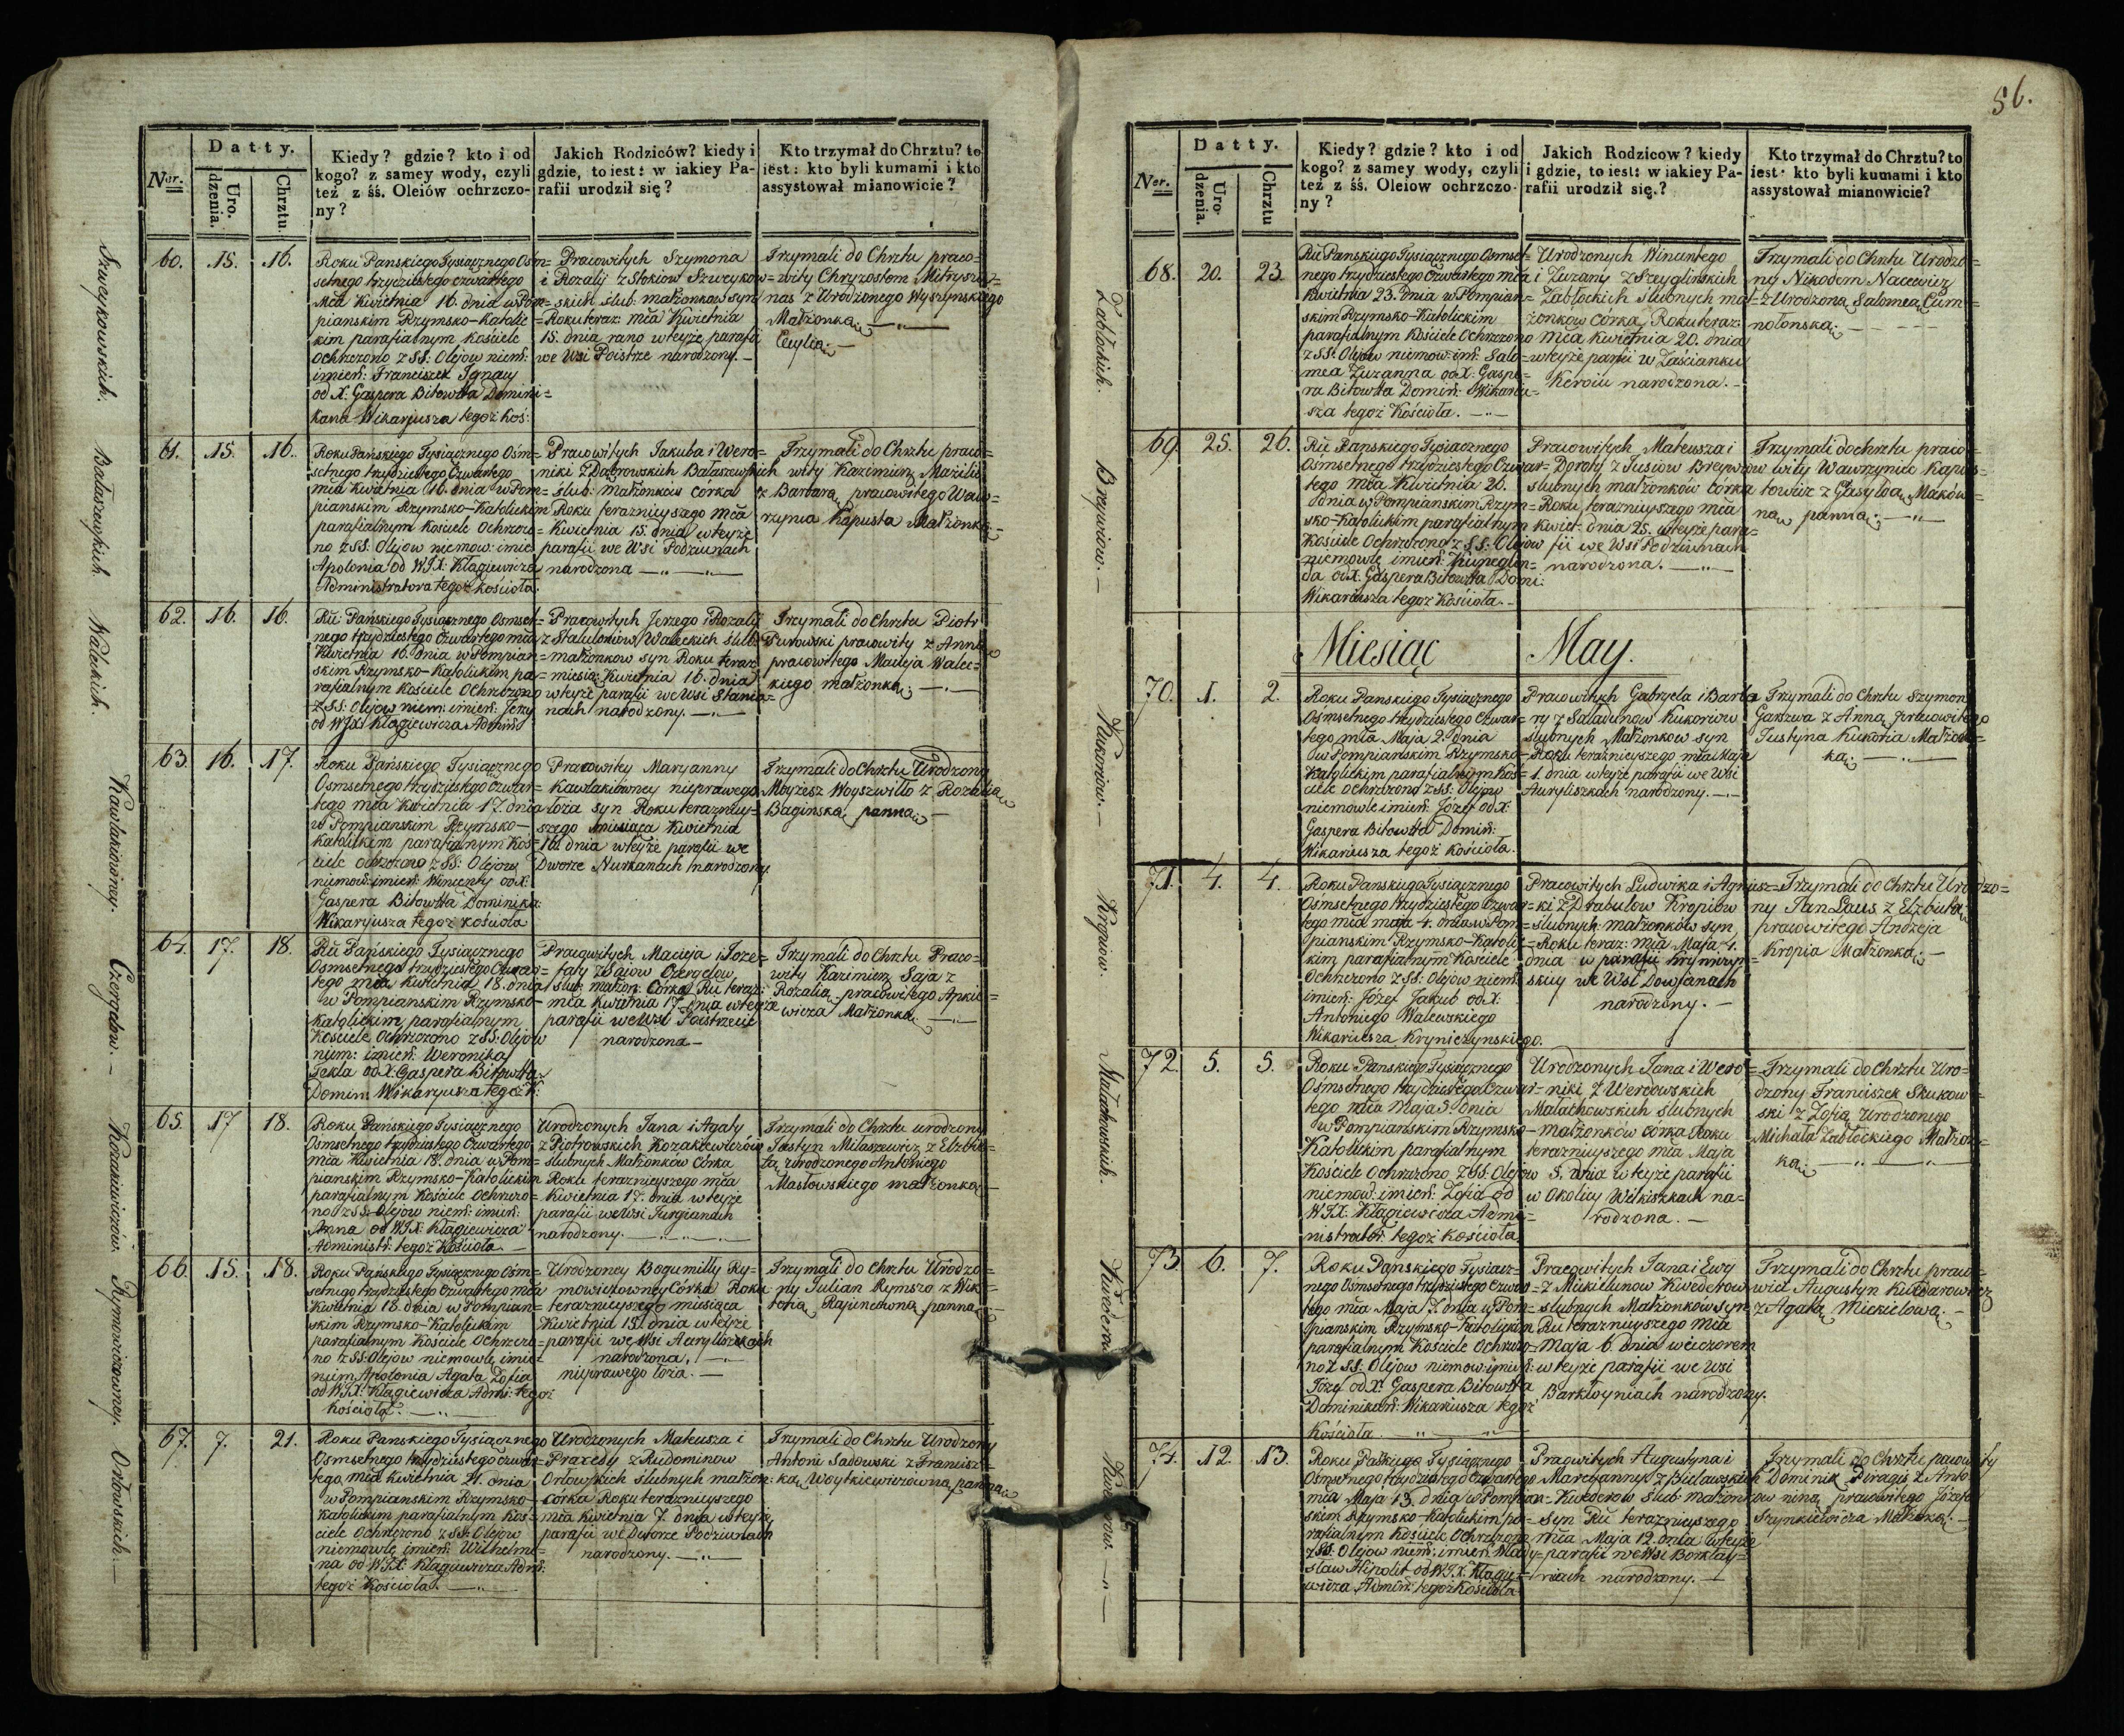 Ner.
Datty.
Uro.
dzenia.
Chrztu.
Kiedy? gdzie? kto i od
kogo? z samey wody, czyli
też z śś. Oleiów ochrzczo-
ny?
Jakich Rodziców? kiedy i
gdzie, to iest: w iakiey Pa-
rafii urodził się?
Kto trzymał do Chrztu? to
iest: kto byli kumami i kto
assystował mianowicie?
Szweykowskich.
60. 15. 16.
Roku Panskiego Tysiącznego Osm=
setnego trzydziestego czwartego
Mca Kwietnia 16. dnia w Pom=
pianskim Rzymsko-Katolic=
kim parafialnym Kościele
ochrzczono z SS. Olejow niem:
imień: Franciszek Ignacy
od X: Gaspera Bitowtta Domini=
kana Wikaryusza tegoż Koś:
Pracowitych Szymona
i Rozalij z Stokiow Szweykow=
skich ślub: małżonkow syn
Roku teraz: mca Kwietnia
15. dnia rano wteyże parafii
we Wsi Poistrze narodzony. –
Trzymali do Chrztu praco=
wity Chryzostom
nas z Urodzonego Wyszynskiego
Małżonką
Cecylią. –
Bałaszewskich
61. 15. 16.
Roku Pańskiego Tysiącznego Ośm=
setnego trzydziestego Czwartego
mca Kwietnia 16. dnia w Pom=
pianskim Rzymsko-Katolickim
parafialnym Kościele Ochrzczo=
no z SS. Olejow niemow: imie:
Apolonia od WJX: Kłagiewicza
Administratora tegoż Kościoła.
Pracowitych Jakuba i Wero=
niki z Dąbrowskich Bałaszewskich
ślub: małżonków córka
Roku terazniejszego Mca
Kwietnia 15. dnia wteyże
parafii we Wsi Podziunach
narodzona
Trzymali do Chrztu praco=
wity Kazimierz
z Barbarą pracowitego Waw=
rzynca Kapusta Małżonką. –
Waleckich.
62. 16. 16.
Ru Pańskiego Tysiącznego Osmset=
nego trzydziestego Czwartego mca
Kwietnia 16. dnia w Pompian=
skim Rzymsko-Katolickim pa=
rafialnym Kościele Ochrzczono
z SS: Olejow niem: imień: Jerzy
od WJX: Kłagiewicza Admin:
Pracowitych Jerzego i Rozalij
z Stalulonow Waleckich ślub:
małżonkow syn Roku teraz:
miesią: Kwietnia 16. dnia
wteyże parafii we Wsi Stania=
nach narodzony.
Trzymali do Chrztu Piotr
Purowski pracowity z Anną
pracowitego Macieja Walec=
kiego małżonką.
Kawlakiówney.
63. 16. 17.
Roku Pańskiego Tysiącznego
Osmsetnego trzydziestego Czwar=
tego mca Kwietnia 17. dnia
w Pompianskim Rzymsko-
Katolickim parafialnym Koś=
ciele ochrzczono z SS: Olejow
niemow: imień: Wincenty od X:
Gaspera Bitowtta Dominika:
Wikaryusza tegoż Kościoła
Pracowitey Maryanny
Kawlakiówney nieprawego
łoża syn Roku terazniey=
szego miesiąca Kwietnia
16. dnia wteyże parafii we
Dworze Nurkanach narodzony.
Trzymali do Chrztu Urodzony
Moyżesz Woyszwiłło z Rozalią
Baginską panną. –
Czergelow. –
64. 17. 18.
Ru Pańskiego Tysiącznego
Osmsetnego trzydziestego Czwar=
tego mca Kwietnia 18. dnia
w Pompianskim Rzymsko-
Katolickim parafialnym
Kościele Ochrzczono z SS: Olejow
niem: imień: Weronika
Tekla od X: Gaspera Bitowtta
Domin: Wikaryusza tegoż K:
Pracowitych Macieja i Joze=
faty z Sajow Czergelow
ślub: małżon: Córka Ru teraz:
mca Kwietnia 17. dnia wteyże
parafii we Wsi Poistrzecie
narodzona –
Trzymali do Chrztu Praco=
wity Kazimierz Saja z
Rozalią pracowitego
wicza Małżonką.
Kozakiewiczów
65. 17 18.
Roku Pańskiego Tysiącznego
Osmsetnego trzydziestego Czwartego
mca Kwietnia 18. dnia w Pom=
pianskim Rzymsko-Katolickim
parafialnym Kościele Ochrzczo=
no z SS: Olejow niem: imień:
Anna od WJX: Kłagiewicza
Administr: tegoż Kościoła. –
Urodzonych Jana i Agaty
z Piotrowskich Kozakiewiczów
ślubnych Małżonków Córka
Roku terazniejszego mca
Kwietnia 17. dnia wteyże
parafii we Wsi Jurgianach
narodzony.
Trzymali do Chrztu urodzony
Justyn Milaszewicz z Elzbie=
tą urodzonego Antoniego
Masłowskiego małżonką. –
Rymowiczowney.
66. 15. 18.
Roku Pańskiego Tysiącznego Osm=
setnego trzydziestego Czwartego mca
Kwietnia 18. dnia w Pompian=
skim Rzymsko-Katolickim
parafialnym Kościele Ochrzczo=
no z SS: Olejow niemowlę imie=
niem Apolonia Agata Zofia
od WJX: Kłagiewicza Admi: tegoż
Kościoła.
Urodzoney Bogumiłły Ry=
mowiczowney Córka Roku
terazniejszego miesiąca
Kwietnia 15. dnia wteyże
parafii we Wsi Auryliszkach
narodzona,
nieprawego łoża. –
Trzymali do Chrztu Urodzo=
ny Julian Rymsza z Wik=
torią Rajunciowną panną. –
Orłowskich. –
67. 7. 21.
Roku Panskiego Tysiącznego
Osmsetnego trzydziestego czwar=
tego mca Kwietnia 21. dnia
w Pompianskim Rzymsko-
Katolickim parafialnym Koś=
ciele Ochrzczono z SS: Olejow
niemowlę imień: Wilhelmi=
na od WJX: Kłagiewicza Adm:
tegoż Kościoła.
Urodzonych Mateusza i
Praxedy z Rudominow
Orłowskich ślubnych małżon:
córka Roku terazniejszego
mca Kwietnia 7. dnia wteyże
parafii we Dworze Podziunach
narodzony.
Trzymali do Chrztu Urodzony
Antoni Sadowski z Francisz=
ką Woytkiewiczówną panną
56.
Ner.
Datty.
Uro-
dzenia.
Chrztu
Kiedy? gdzie? kto i od
kogo? z samey wody, czyli
też z śś. Oleiow ochrzczo-
ny?
Jakich Rodzicow? kiedy
i gdzie, to iest: w iakiey Pa-
rafii urodził się.?
Kto trzymał do Chrztu? to
iest: kto byli kumami i kto
assystował mianowicie?
Zabłockich.
68. 20. 23.
Ru Panskiego Tysiącznego Osmset=
nego trzydziestego Czwartego mca
Kwietnia 23. dnia w Pompian=
skim Rzymsko-Katolickim
parafialnym Kościele Ochrzczono
z SS: Olejow niemow: im: Salo=
mea Zuzanna od X: Gaspe=
ra Bitowtta Domin: Wikariu=
sza tegoż Kościoła.
Urodzonych Wincentego
i Zuzany z Szyglinskich
Zabłockich ślubnych mał=
żonkow córka Roku teraz:
mca Kwietnia 20. dnia
wteyże parfii w Zaścianku
Keroiu narodzona. –
Trzymali do Chrztu Urodzo=
ny Nikodem Nacewicz
z Urodzoną Salomeą Cum=
nolonską.
69. 25. 26.
Ru Panskiego Tysiącznego
Osmsetnego trzydziestego Czwar=
tego mca Kwietnia 26.
dnia w Pompianskim Rzym=
sko-Katolickim parafialnym
Kościele Ochrzczono z SS: Olejow
niemowlę imień: Kunegun=
da od X: Gaspera Bitowtta Domi:
Wikariusza tegoż Kościoła. –
Pracowitych Mateusza i
Doroty z Tusiow
ślubnych małżonków Córka
Roku terazniejszego mca
Kwiet: dnia 25. wteyże para=
fii we Wsi Podziunach
narodzona.
Trzymali do chrztu praco=
wity Wawrzyniec Kapus=
towicz z Gasyldą Maków=
ną panną.
Miesiąc May.
Kukoriow. –
70. 1. 2.
Roku Panskiego Tysiącznego
Osmsetnego trzydziestego Czwar=
tego mca Maja 2. dnia
w Pompianskim Rzymsko-
Katolickim parafialnym Koś=
ciele Ochrzczono z SS: Olejow
niemowle imień: Józef od X:
Gaspera Bitowtta Domin:
Wikariusza tegoż Kościoła.
Pracowitych Gabryela i Barba=
ry z Saladunow Kukoriow
ślubnych Małżonkow syn
Roku terazniejszego mca Maja
1. dnia wteyże parafii we Wsi
Auryliszkach narodzony.
Trzymali do Chrztu Szymon
Garszwa z Anną pracowitego
Justyna Kukoria Małżon=
ką.
Kropiow.
71. 4. 4.
Roku Panskiego Tysiącznego
Osmsetnego trzydziestego Czwar=
tego mca maja 4. dnia w Pom=
pianskim Rzymsko-Katolic=
kim parafialnym Kościele
Ochrzczono z SS: Olejow niem:
imień: Józef Jakub od X:
Antoniego Walewskiego
Wikariusza Kryniczynskiego.
Pracowitych Ludwika i Agniesz=
ki z Drabulow Kropiow
ślubnych: małżonków syn
Roku teraz: mca Maja 4.
dnia w parafii Krynczyn=
skiey we Wsi Dowjanach
narodzony. –
Trzymali do Chrztu Urodzo=
ny Jan Laus z Elzbietą
pracowitego Andzeja
Kropia Małżonką. –
Małachowskich.
72. 5. 5.
Roku Panskiego Tysiącznego
Osmsetnego trzydziestego Czwar=
tego mca Maja 5. dnia
w Pompianskim Rzymsko-
Katolickim parafialnym
Kościele Ochrzczono z SS. Olejow
niemow: imień: Zofia od
WJX: Kłagiewicza Admi=
nistrator: tegoż Kościoła
Urodzonych Jana i Wero=
niki z Wercowskich
Małachowskich ślubnych
małżonków córka Roku
terazniejszego mca Maja
5. dnia wteyże parafii
w Okolicy Wilkiszkach na=
rodzona. –
Trzymali do Chrztu Uro=
dzony Franciszek Skukow=
ski z Zofią urodzonego
Michała Zabłockiego Małżon=
ką.
73. 6. 7.
Roku Pańskiego Tysiącz=
nego Osmsetnego trzydziestego Czwar=
tego mca Maja 7. dnia w Pom=
pianskim Rzymsko-Katolickim
parafialnym Kościele Ochrzczo=
no z SS: Olejow niemow: imień:
Józef od X: Gaspera Bitowtta
Dominikan: Wikariusza tegoż
Kościoła.
Pracowitych Jana i Ewy
z Mickielunow Kwederow
ślubnych Małżonków syn
Ru terazniejszego mca
Maja 6. dnia wieczorem
wteyże parafii we Wsi
Barkłoyniach narodzony.
Trzymali do Chrztu praco=
wici Augustyn Kwedarowicz
z Agatą Mickielową. –
Kwederow.
74. 12. 13.
Roku Pańskiego Tysiącznego
Osmsetnego trzydziestego Czwartego
mca Maja 13. dnia w Pompian=
skim Rzymsko-Katolickim pa=
rafialnym Kościele Ochrzczono
z SS: Olejow niem: imień: Wlady=
sław Hipolit od WJX: Kłagie=
wicza Admin: tegoż Kościoła
Pracowitych Augustyna i
Maryanny z Bielawskich
Kwederow ślub: małżonkow
syn Ru terazniejszego
mca Maja 12. dnia wteyże
parafii we Wsi Borklay=
niach narodzony. –
Trzymali do Chrztu pracowity
Dominik Piragis z Anto=
niną pracowitego Józefa
Szynkiewicza Małżonką. –